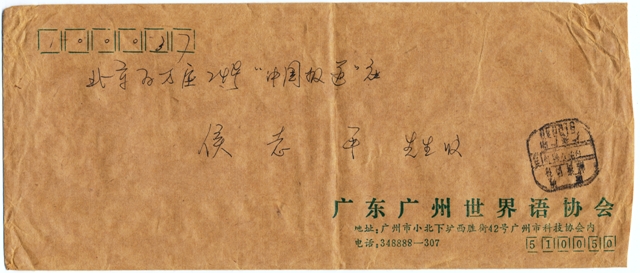 100037
北京百万庄24号“中国报道”社
侯志平 先生收
广东广州世界语协会
地址:广州市小北下圹西胜街42号广州市科技协会内
电话,348888—307 510050